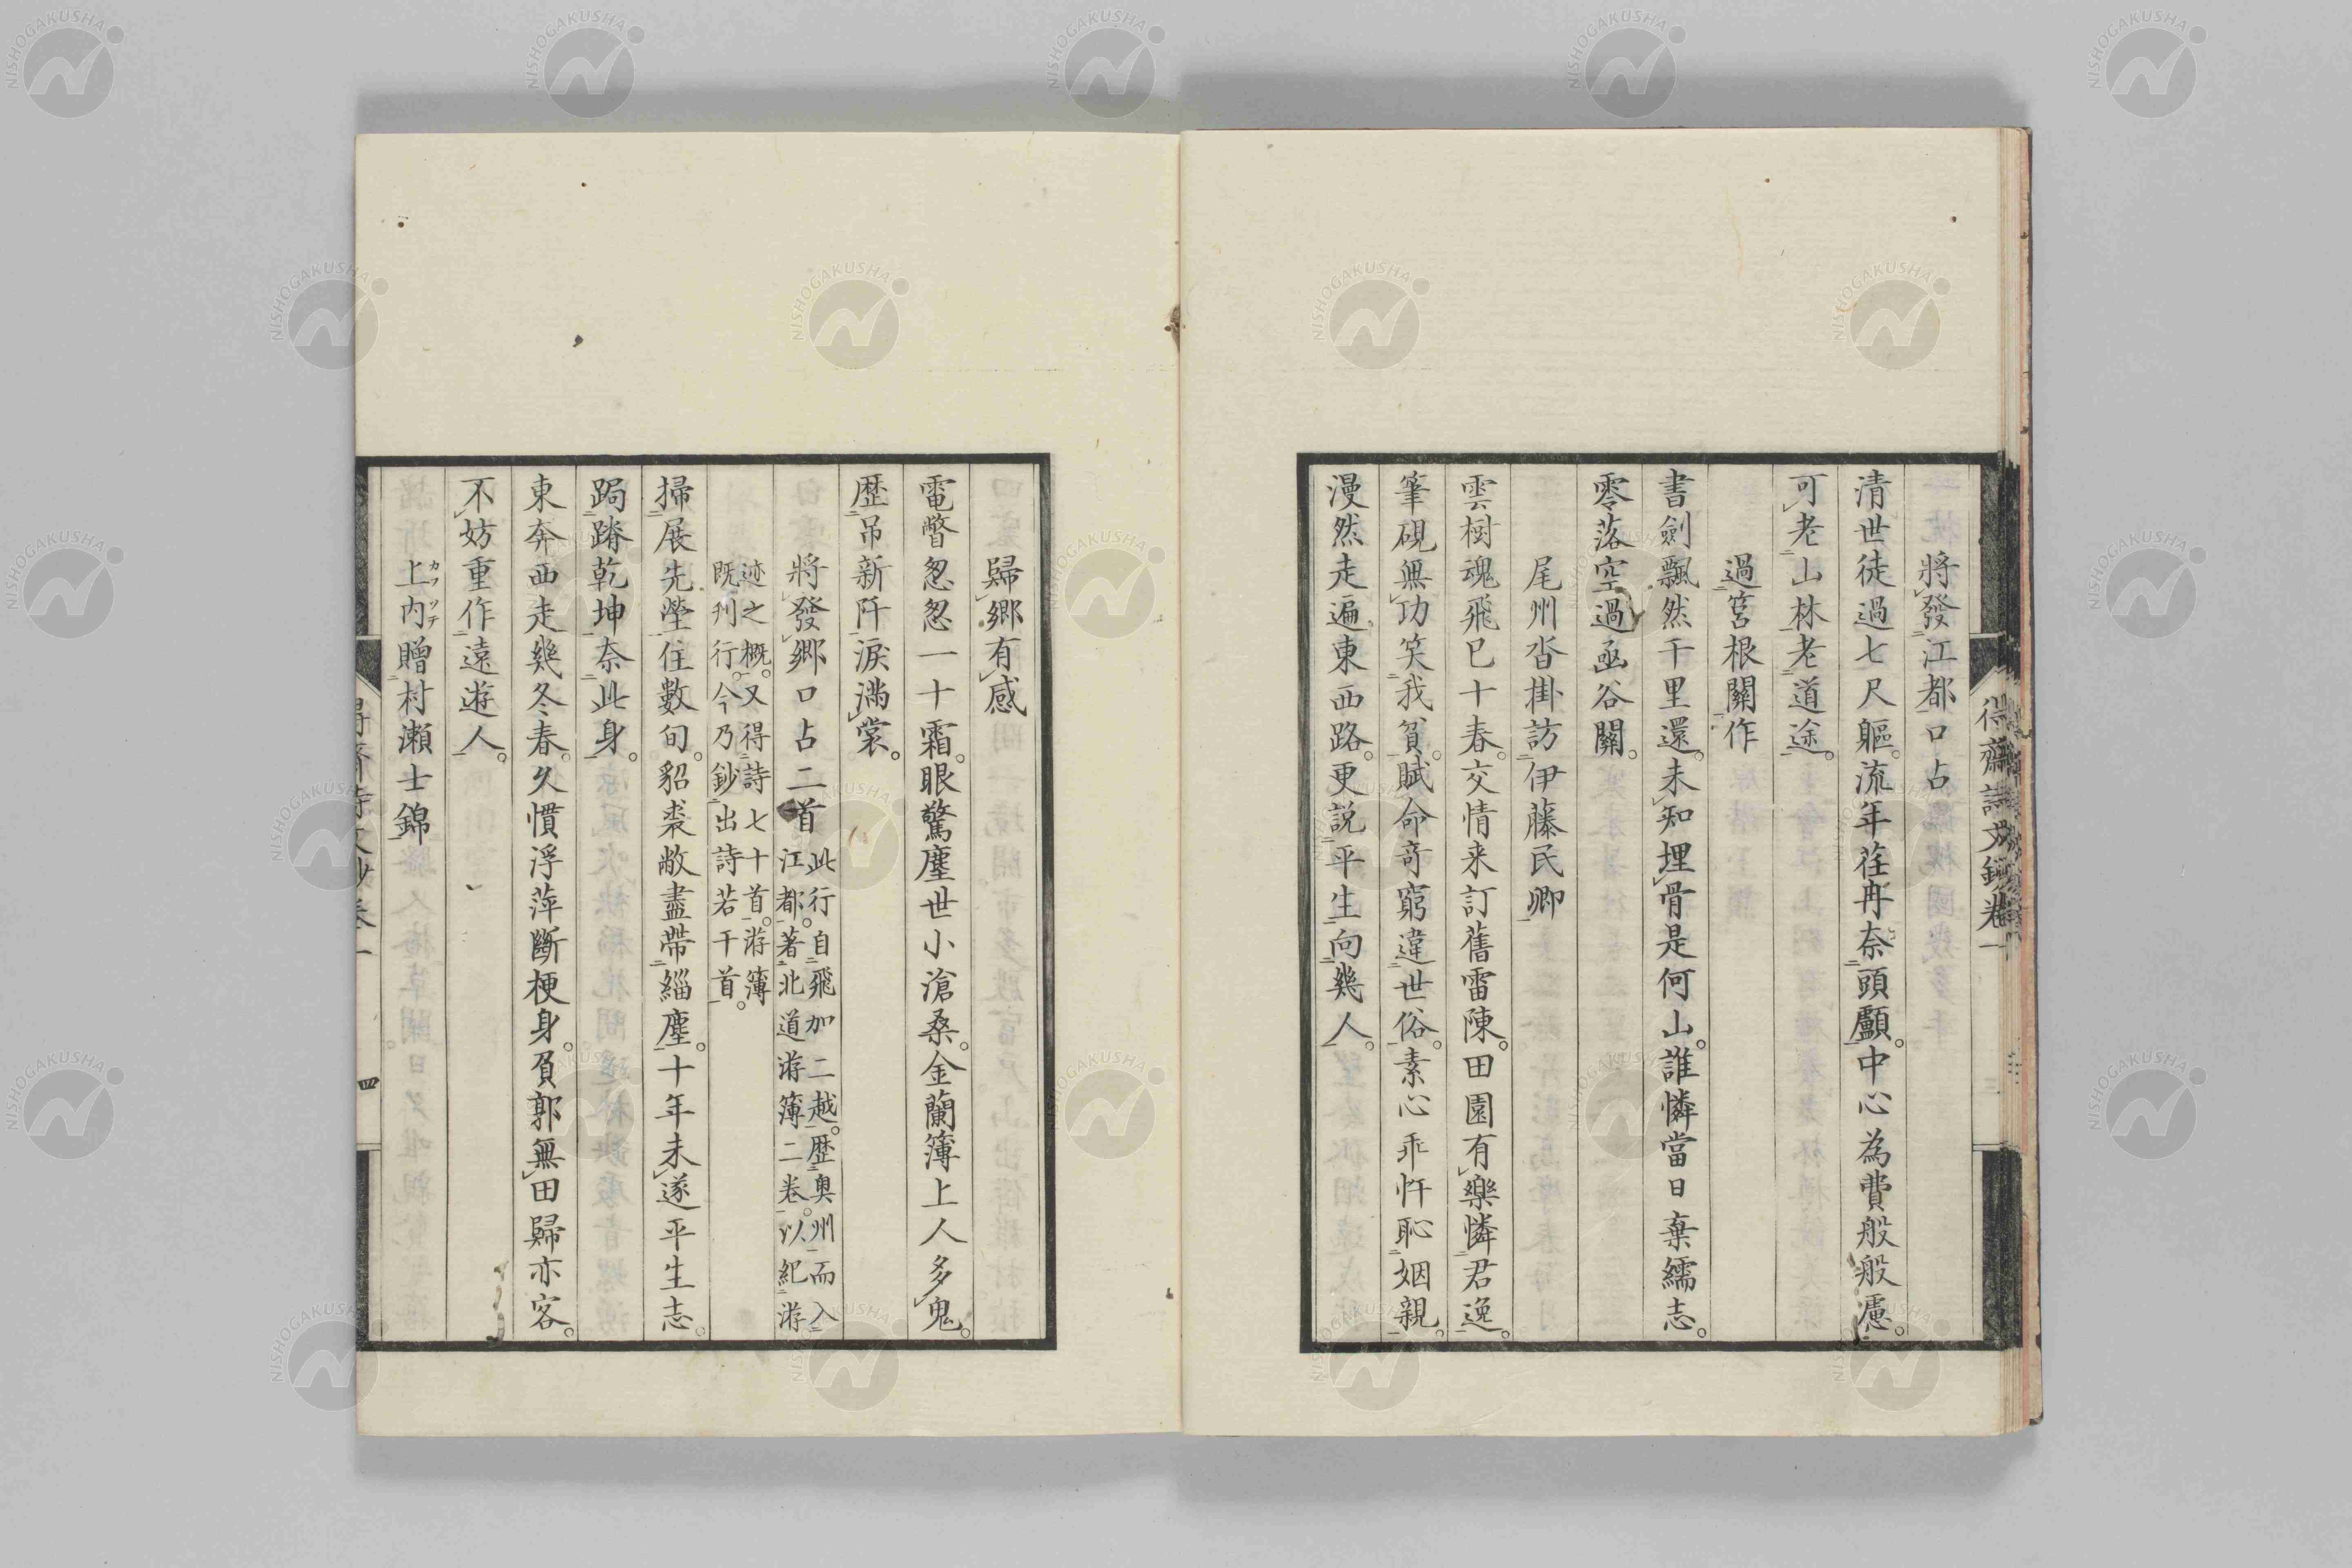 得齋詩文鈔卷一
將發江都口占
清世徒過七尺軀。流年荏苒奈頭顱。中心為費般般慮。
可老山林老道途。
過筥根關作
書劍飄然千里還。未知埋骨是何山。誰憐當日棄繻志。
零落空過凾谷關。
尾州沓掛訪伊藤民卿
雲樹魂飛已十春。交情来訂舊雷陳。田園有樂憐君逸。
筆硯無功笑我貧。賦命奇窮違世俗。素心乖忤恥姻親。
漫然走遍東西路。更説平生向幾人。
歸鄉有感
電瞥怱怱一十霜。眼驚塵世小滄桑。金蘭簿上人多鬼。
歷吊新阡淚滿裳。
將發鄉口占二首
此行自飛加二越。歷奥州而入
江都。著北道游簿二卷。以紀游
迹之概。又得詩七十首。游簿
既刋行。今乃鈔出詩若干首。
掃展先塋住數旬。貂裘敝盡帶緇塵。十年未遂平生志。
跼蹐乾坤奈此身。
東奔西走幾冬春。久慣浮萍斷梗身。負郭無田歸亦客。
不妨重作遠遊人。
上内贈村瀬士錦
カフツチ
四
NISHOGAKUSHA